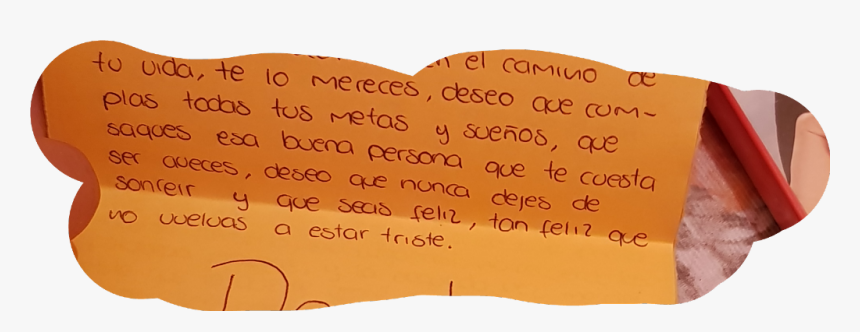 en el camino de
tu vida, te lo mereces, deseo que cum-
plas todas tus metas y sueños, que
saques esa buena persona que te cuesta
ser aveces, deseo que nunca dejes de
sonreir y que seas feliz, tan feliz que
no vuelvas a estar triste.